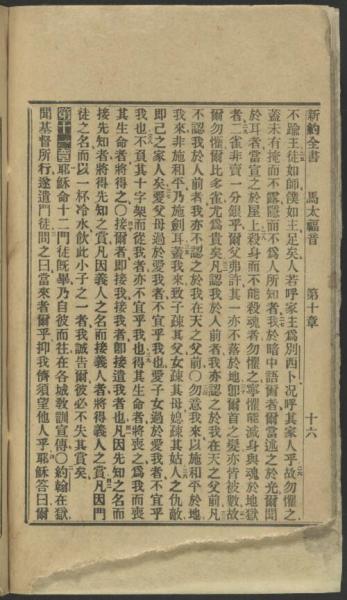 新約全書 馬太福音 第十章 十六
不踰主徒如師僕如主足矣人若呼家主爲別西卜况呼其家人乎故勿懼之
蓋未有掩而不露隱而不爲人所知者我於暗中語爾者爾當述之於光爾聞
於耳者當宣之於屋上殺身而不能殺魂者勿懼之寧懼能滅身與魂於地獄
者二雀非賣一分銀乎爾父弗許其一亦不落於地卽爾首之髮亦皆被數故
爾勿懼爾比多雀尤爲貴矣凡認我於人前者我亦認之於我在天之父前凡
不認我於人前者我亦不認之於我在天之父前〇勿意我來以施和平於地
我來非施和平乃施劍耳蓋我來致子疎其父女疎其母媳疎其姑人之仇敵
卽己之家人矣愛父母過於愛我者不宜乎我也愛子女過於愛我者不宜乎
我也不負其十字架而從我者亦不宜乎我也得其生命者將喪之爲我而喪
其生命者將得之〇接爾者卽接我接我者卽接遣我者也凡因先知之名而
接先知者將得先知之賞凡因義人之名而接義人者將得義人之賞凡因門
徒之名而以一杯冷水飲此小子之一者我誠告爾彼必不失其賞矣
第十一章耶穌命十二門徒旣畢乃自彼而往在各城敎訓宣得〇約翰在獄
聞基督所行遂遣門徒問之曰當來者爾乎抑我儕須望他人乎耶穌答曰爾